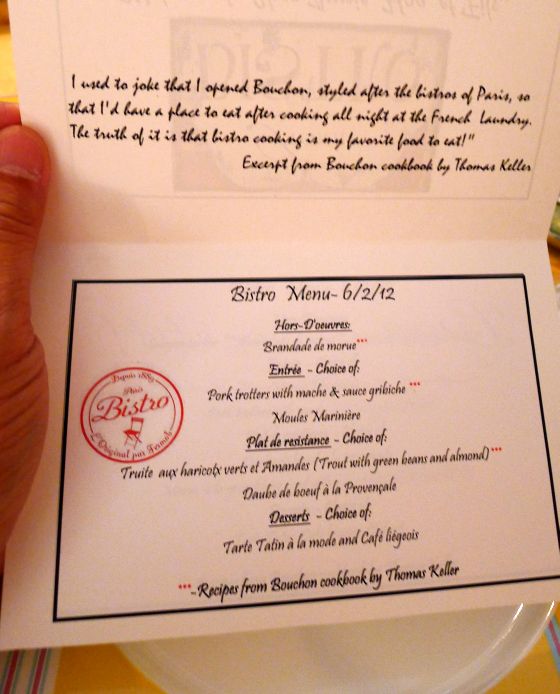 I used to joke that I opened Bouchon, styled after the bistros of Paris, so
that I'd have a place to eat after cooking all night at the French Laundry.
The truth of it is that bistro cooking is my favorite food to eat!"
Excerpt from Bouchon cookbook by Thomas Keller
Bistro Menu- 6/2/12
Hors-D'oeuvres:
Brandade de morue***
Entrée - Choice of:
Pork trotters with mache & sauce gribiche ***
Moules Marinière
Plat de resistance - Choice of:
Truite aux haricotx verts et Amandes (Trout with green beans and almond)***
Daube de boeuf à la Provençale
Desserts - Choice of:
Tarte Tatin à la mode and Café liégeois
***-Recipes from Bouchon cookbook by Thomas Keller
Depuis 1885
Paris
Bistro
L'Original par